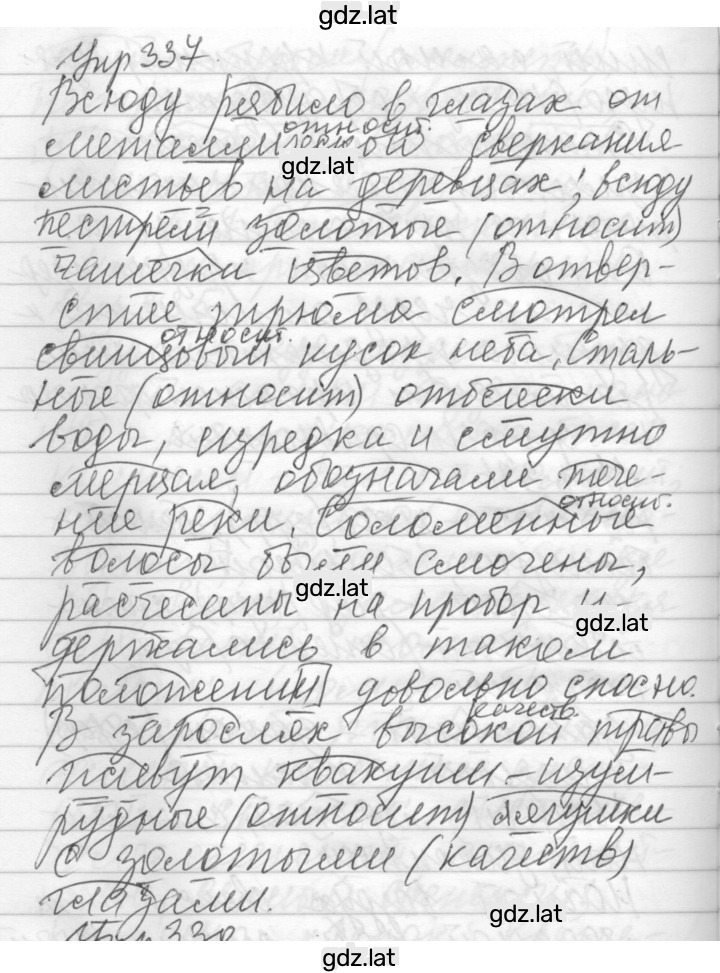 gdz.lat
Упр 337.
Всюду рябило в глазах от
относит.
сверкания
gdz.lat
листьев на деревцах; всюду
пестрели золотые (относит)
чашечки цветов. В отвер-
стие трюма смотрел
относит.
свинцовый кусок неба. Сталь-
ные (относит) отблески
воды, изредка и смутно
мерцая, обозначали тече-
ние реки. Соломенные
относит.
волосы были смочены,
gdz.lat
расчесаны на пробор и
gdz.lat
держались в таком
положении довольно сносно.
качеств.
В зарослях высокой травы
плывут квакуши - изум-
рудные (относит) лягушки
с золотыми (качеств)
глазами.
gdz.lat
Упр 338
gdz.lat